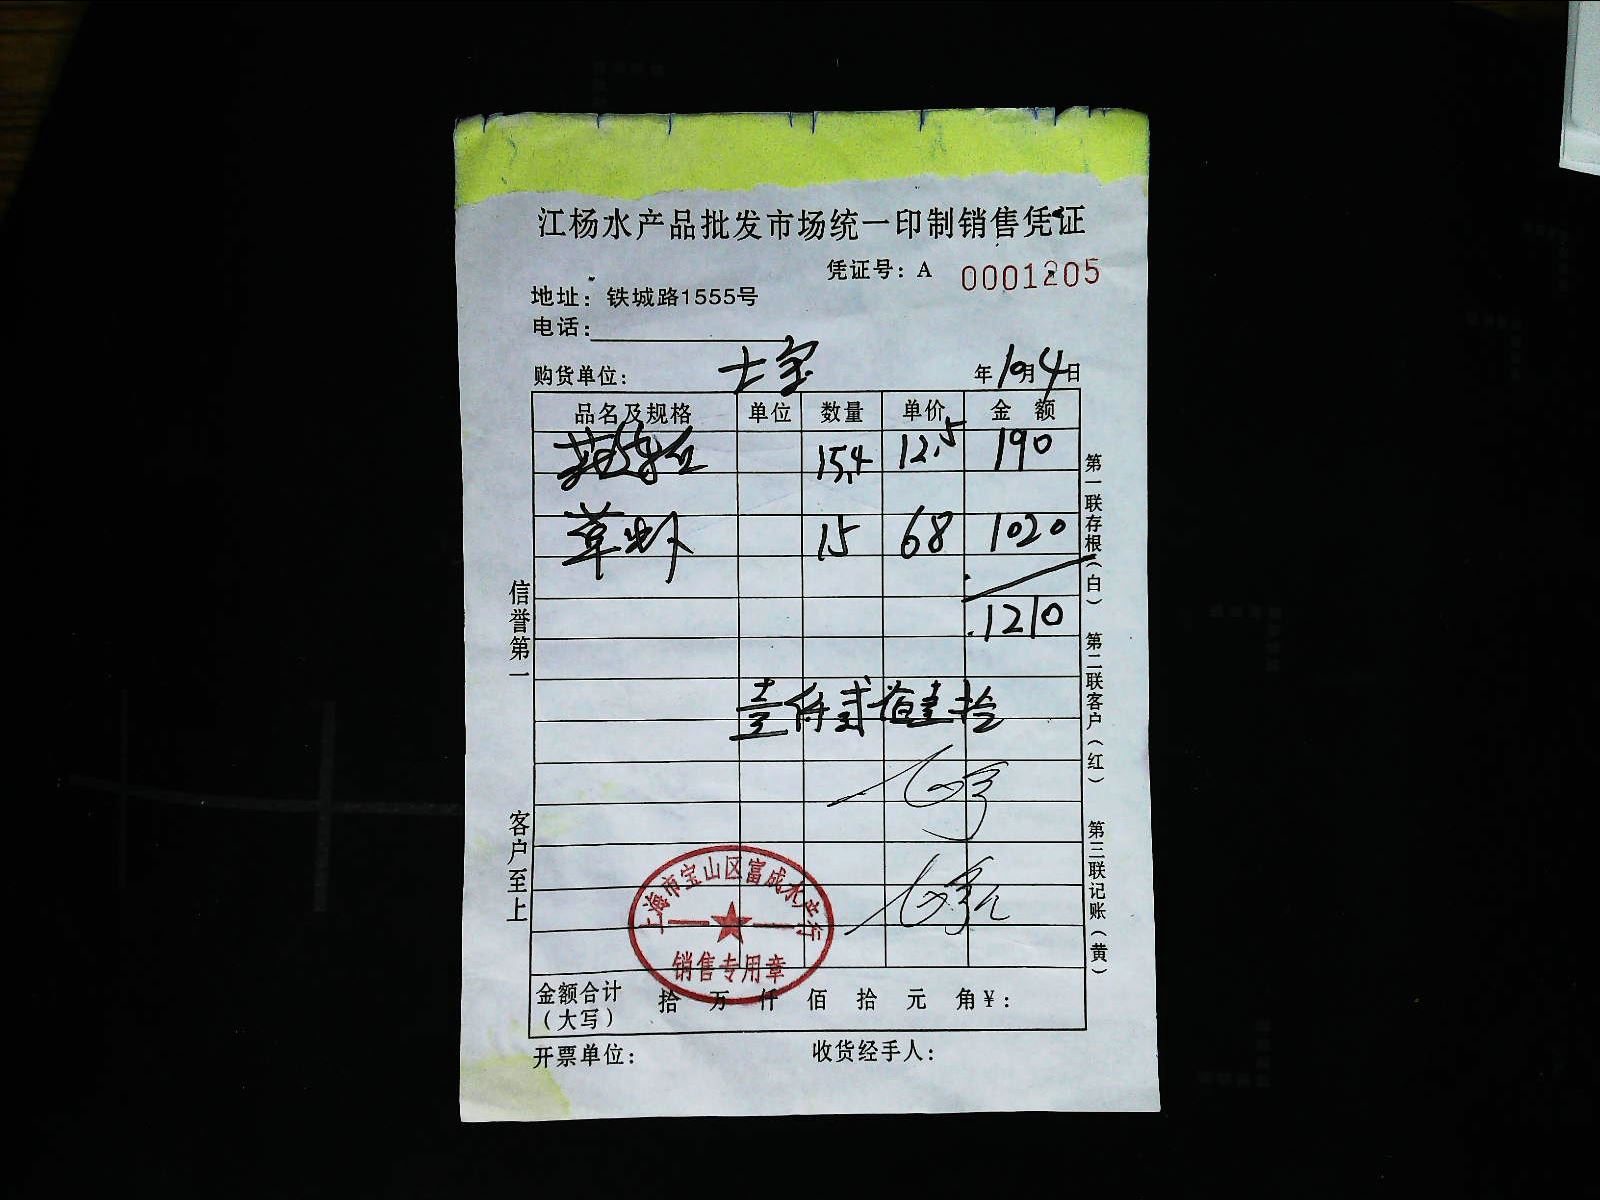 江杨水产品批发市场统一印制销售凭证
凭证号：A 0001205
地址：铁城路1555号
电话：
购货单位： 七宝 年10月4日
品名及规格 单位 数量 单价 金额
15.4 12.5 190
草虾 15 68 1020
1210
壹仟贰佰壹拾
上海市宝山区富成水产行
销售专用章
金额合计（大写） 拾 万 仟 佰 拾 元 角 ¥：
开票单位： 收货经手人：
信誉第一
客户至上
第一联存根（白）
第二联客户（红）
第三联记账（黄）